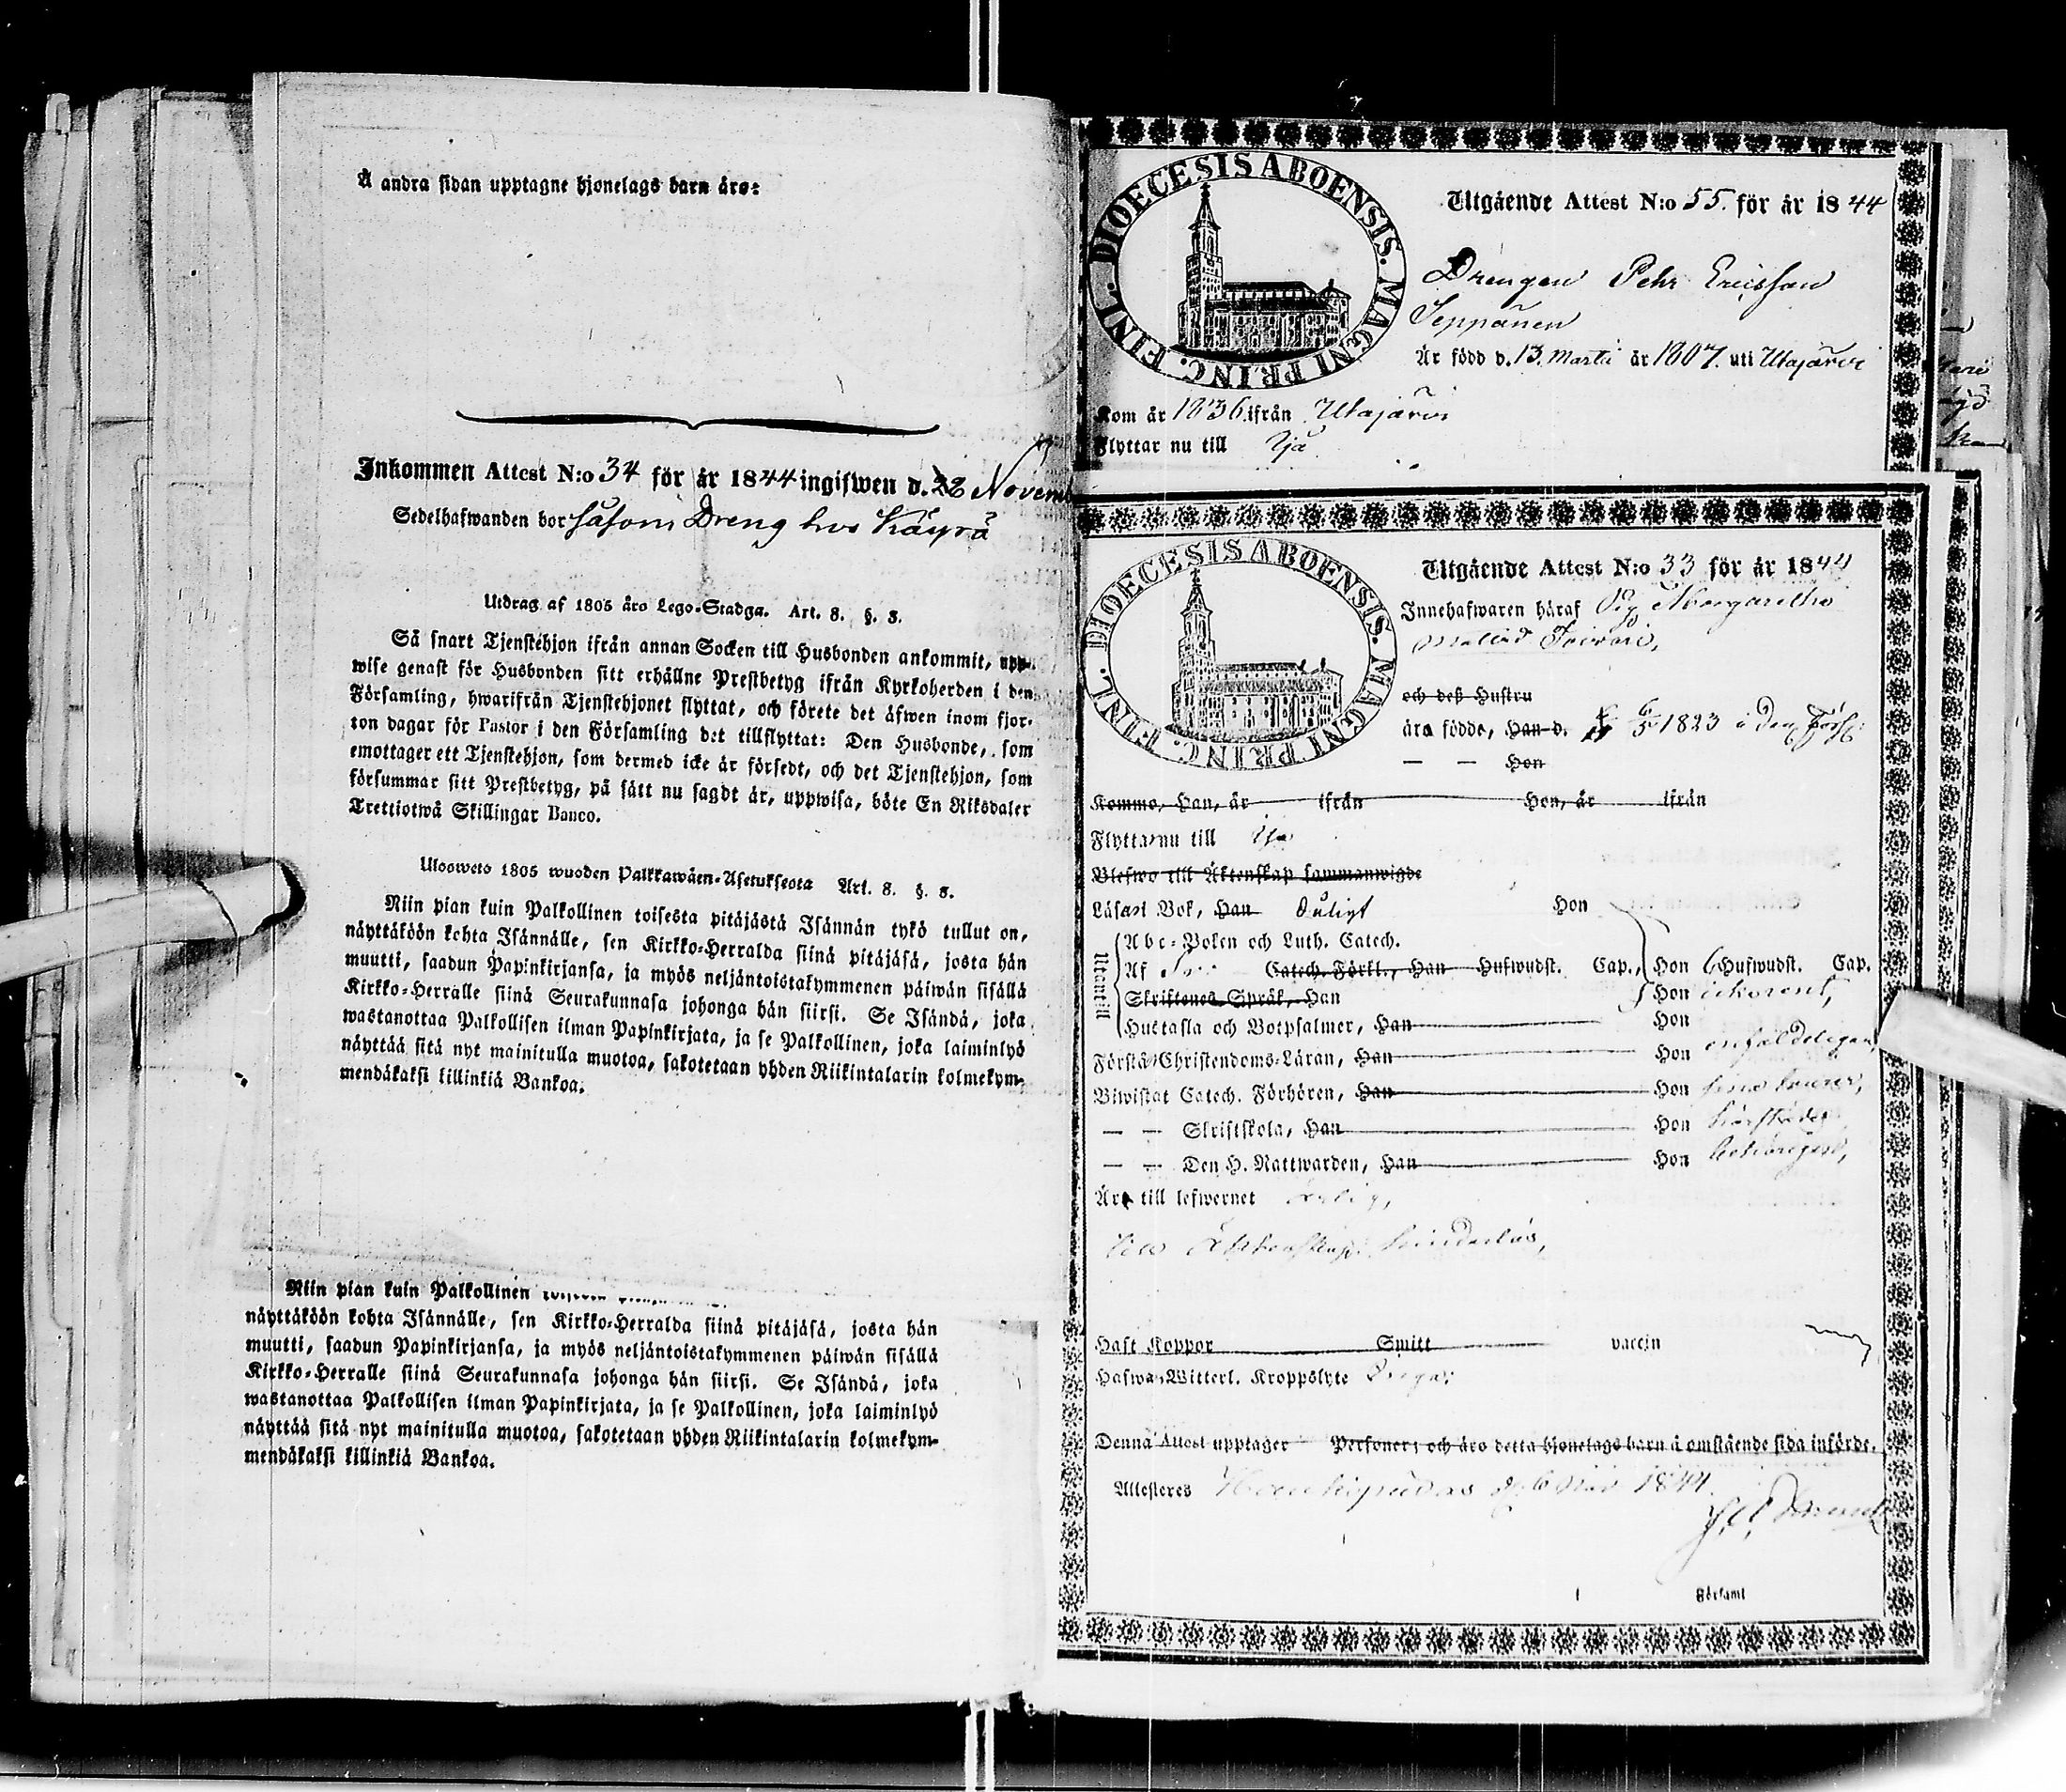 Å andra sidan upptagne hjonelags barn äro:
Inkommen Attest N:o 34 för år 1844 ingifwen d. 22 Novemb
Sedelhafwanden bor såsom Dreng hos Käyrä
Utdrag af 1805 års Lego-Stadga. Art. 8. §. 3.
Så snart Tjenstehjon ifrån annan Socken till Husbonden ankommit, upp-
wise genast för Husbonden sitt erhållne Prestbetyg ifrån Kyrkoherden i den
Församling, hwarifrån Tjenstehjonet flyttat, och förete det äfwen inom fjor-
ton dagar för Pastor i den Församling det tillflyttat: Den Husbonde, som
emottager ett Tjenstehjon, som dermed icke är försedt, och det Tjenstehjon, som
försummar sitt Prestbetyg, på sätt nu sagdt är, uppwisa, böte En Riksdaler
Trettiotwå Skillingar Banco.
Ulosweto 1805 wuoden Palkkawäen-Asetuksesta Art. 8. §. 3.
Niin pian kuin Palkollinen toisesta pitäjästä Isännän tykö tullut on,
näyttäköön kohta Isännälle, sen Kirkko-Herralda siinä pitäjäsä, josta hän
muutti, saadun Papinkirjansa, ja myös neljäntoistakymmenen päiwän sisällä
Kirkko-Herralle siinä Seurakunnasa johonga hän siirsi. Se Isändä, joka
wastanottaa Palkollisen ilman Papinkirjata, ja se Palkollinen, joka laiminlyö
näyttää sitä nyt mainitulla muotoa, sakotetaan yhden Riikintalarin kolmekym-
mendäkaksi killinkiä Bankoa.
Niin pian kuin Palkollinen
näyttäköön kohta Isännälle, sen Kirkko-Herralda siinä pitäjäsä, josta hän
muutti, saadun Papinkirjansa, ja myös neljäntoistakymmenen päiwän sisällä
Kirkko-Herralle siinä Seurakunnasa johonga hän siirsi. Se Isändä, joka
wastanottaa Palkollisen ilman Papinkirjata, ja se Palkollinen, joka laiminlyö
näyttää sitä nyt mainitulla muotoa, sakotetaan yhden Riikintalarin kolmekym-
mendäkaksi killinkiä Bankoa.
DIOECESIS ABOENSIS. MAGNI PRINC. FINL.
Utgående Attest N:o 55. för år 1844
Drengen Pehr Ericsson
Seppänen
Är född d. 13 Martii år 1807. uti Utajärvi
Kom år 1836 ifrån Utajärvi
Flyttar nu till Ijå
DIOECESIS ABOENSIS. MAGNI PRINC. FINL.
Utgående Attest N:o 33 för år 1844
Innehafwaren häraf Pig Margaretha
och deß Hustru
äro födde, Han d. 1823 i den Förs:
— — Hon
Kommo, Han, år ifrån Hon, år ifrån
Flyttar nu till Ijo
Blefwo till Äktenskap sammanwigde
Läsa i Bok, Han Hon
Utantill
Abc-Boken och Luth. Catech.
Af Catech. Förkl., Han Hufwudst. Cap., Hon 6 Hufwudst. Cap.
Skriftenes Språk, Han Hon
Hustafla och Botpsalmer, Han Hon
Förstå Christendoms-Läran, Han Hon
Biwistat Catech. Förhören, Han Hon
— — Skriftskola, Han Hon
— — Den H. Nattwarden, Han Hon
Äro till lefwernet
till Äktenskap hinderlös,
Haft Koppor Smitt vaccin
Hafwa Witterl. Kroppslyte Inga:
Denna Attest upptager Personer; och äro detta hjonelags barn å omstående sida införde.
Attesteres Haukipudas d. 6 Nov 1844.
Församl